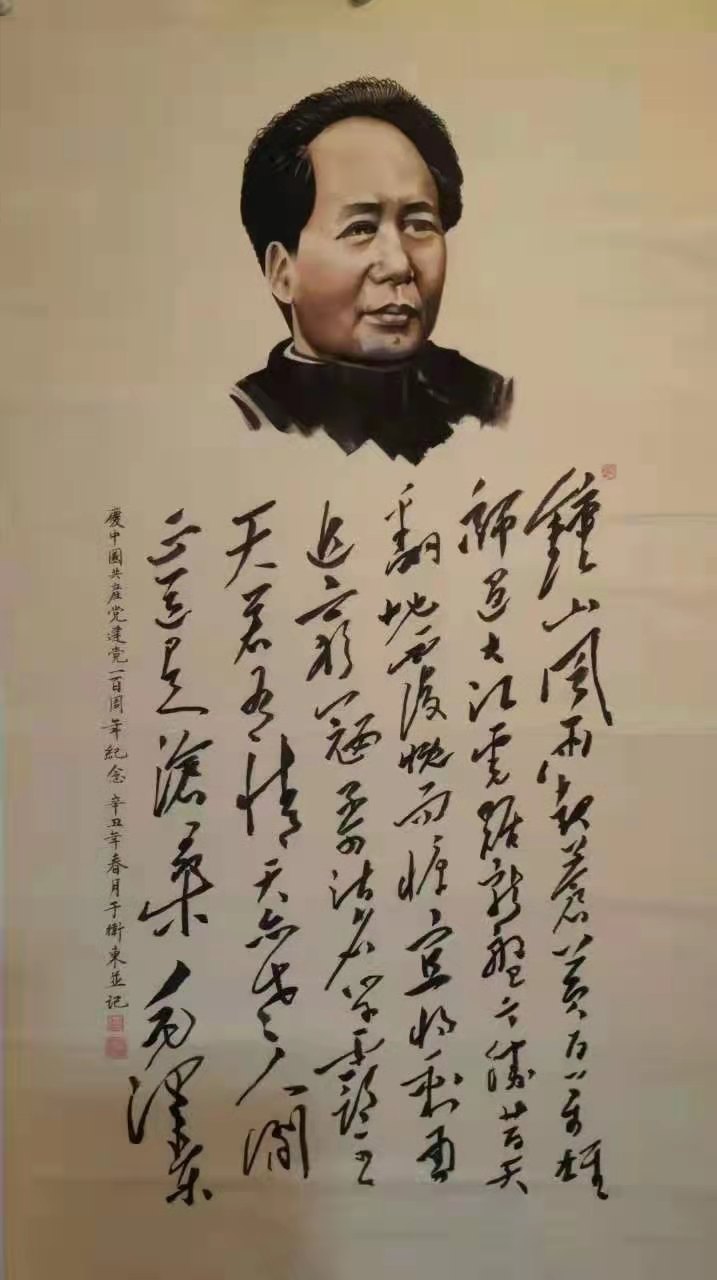 鐘山風雨起蒼黃百万雄
師過大江虎踞龍盤今勝昔天
翻地覆慨而慷宜將剩勇
追窮寇不可沽名學霸王
天若有情天亦老人間
正道是滄桑 毛澤東
慶中國共産党建党一百周年紀念 辛丑年春月于衛東並记